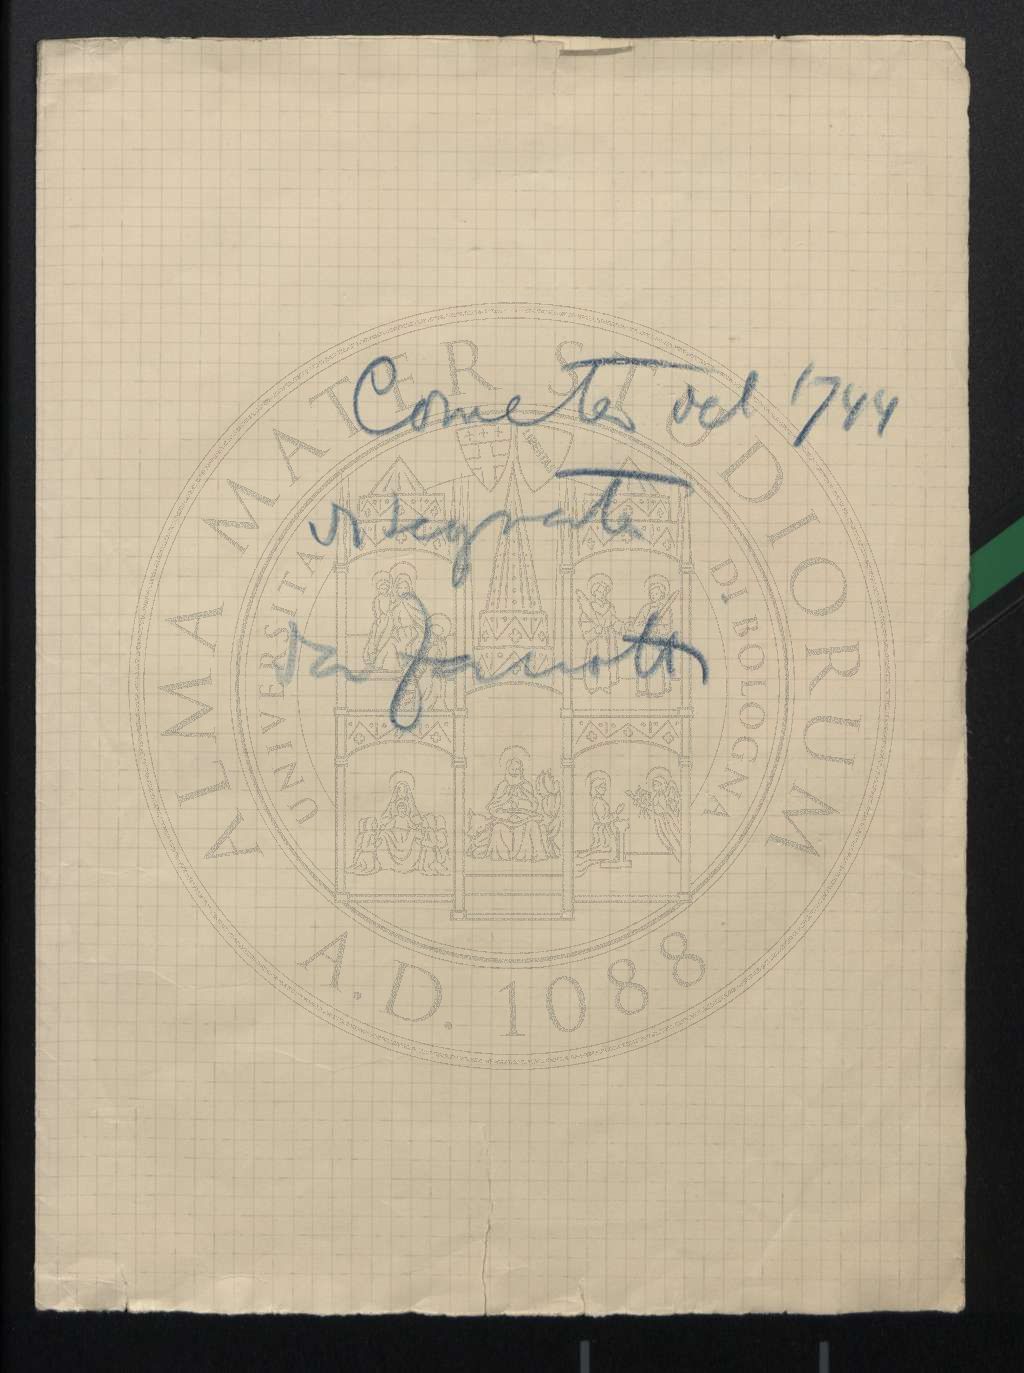 Cometa del 1744
disegnata
da Zanotti
ALMA MATER STUDIORUM
UNIVERSITÀ DI BOLOGNA
A.D. 1088